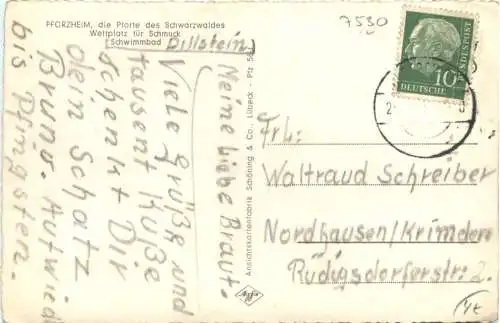 PFORZHEIM, die Pforte des Schwarzwaldes
Weltplatz für Schmuck
Schwimmbad (Dillstein)
Meine liebe Braut.
Viele grüße und
tausent Küße
schenkt Dir
dein Schatz
Bruno. Aufwied
bis Pfingsten.
Ansichtskartenfabrik Schöning & Co., Lübeck - Pfz
Agfa
7530
10
DEUTSCHE
BUNDESPOST
Frl:
Waltraud Schreiber
Nordhausen/Krimdero
Rüdigsdorferstr: 2.